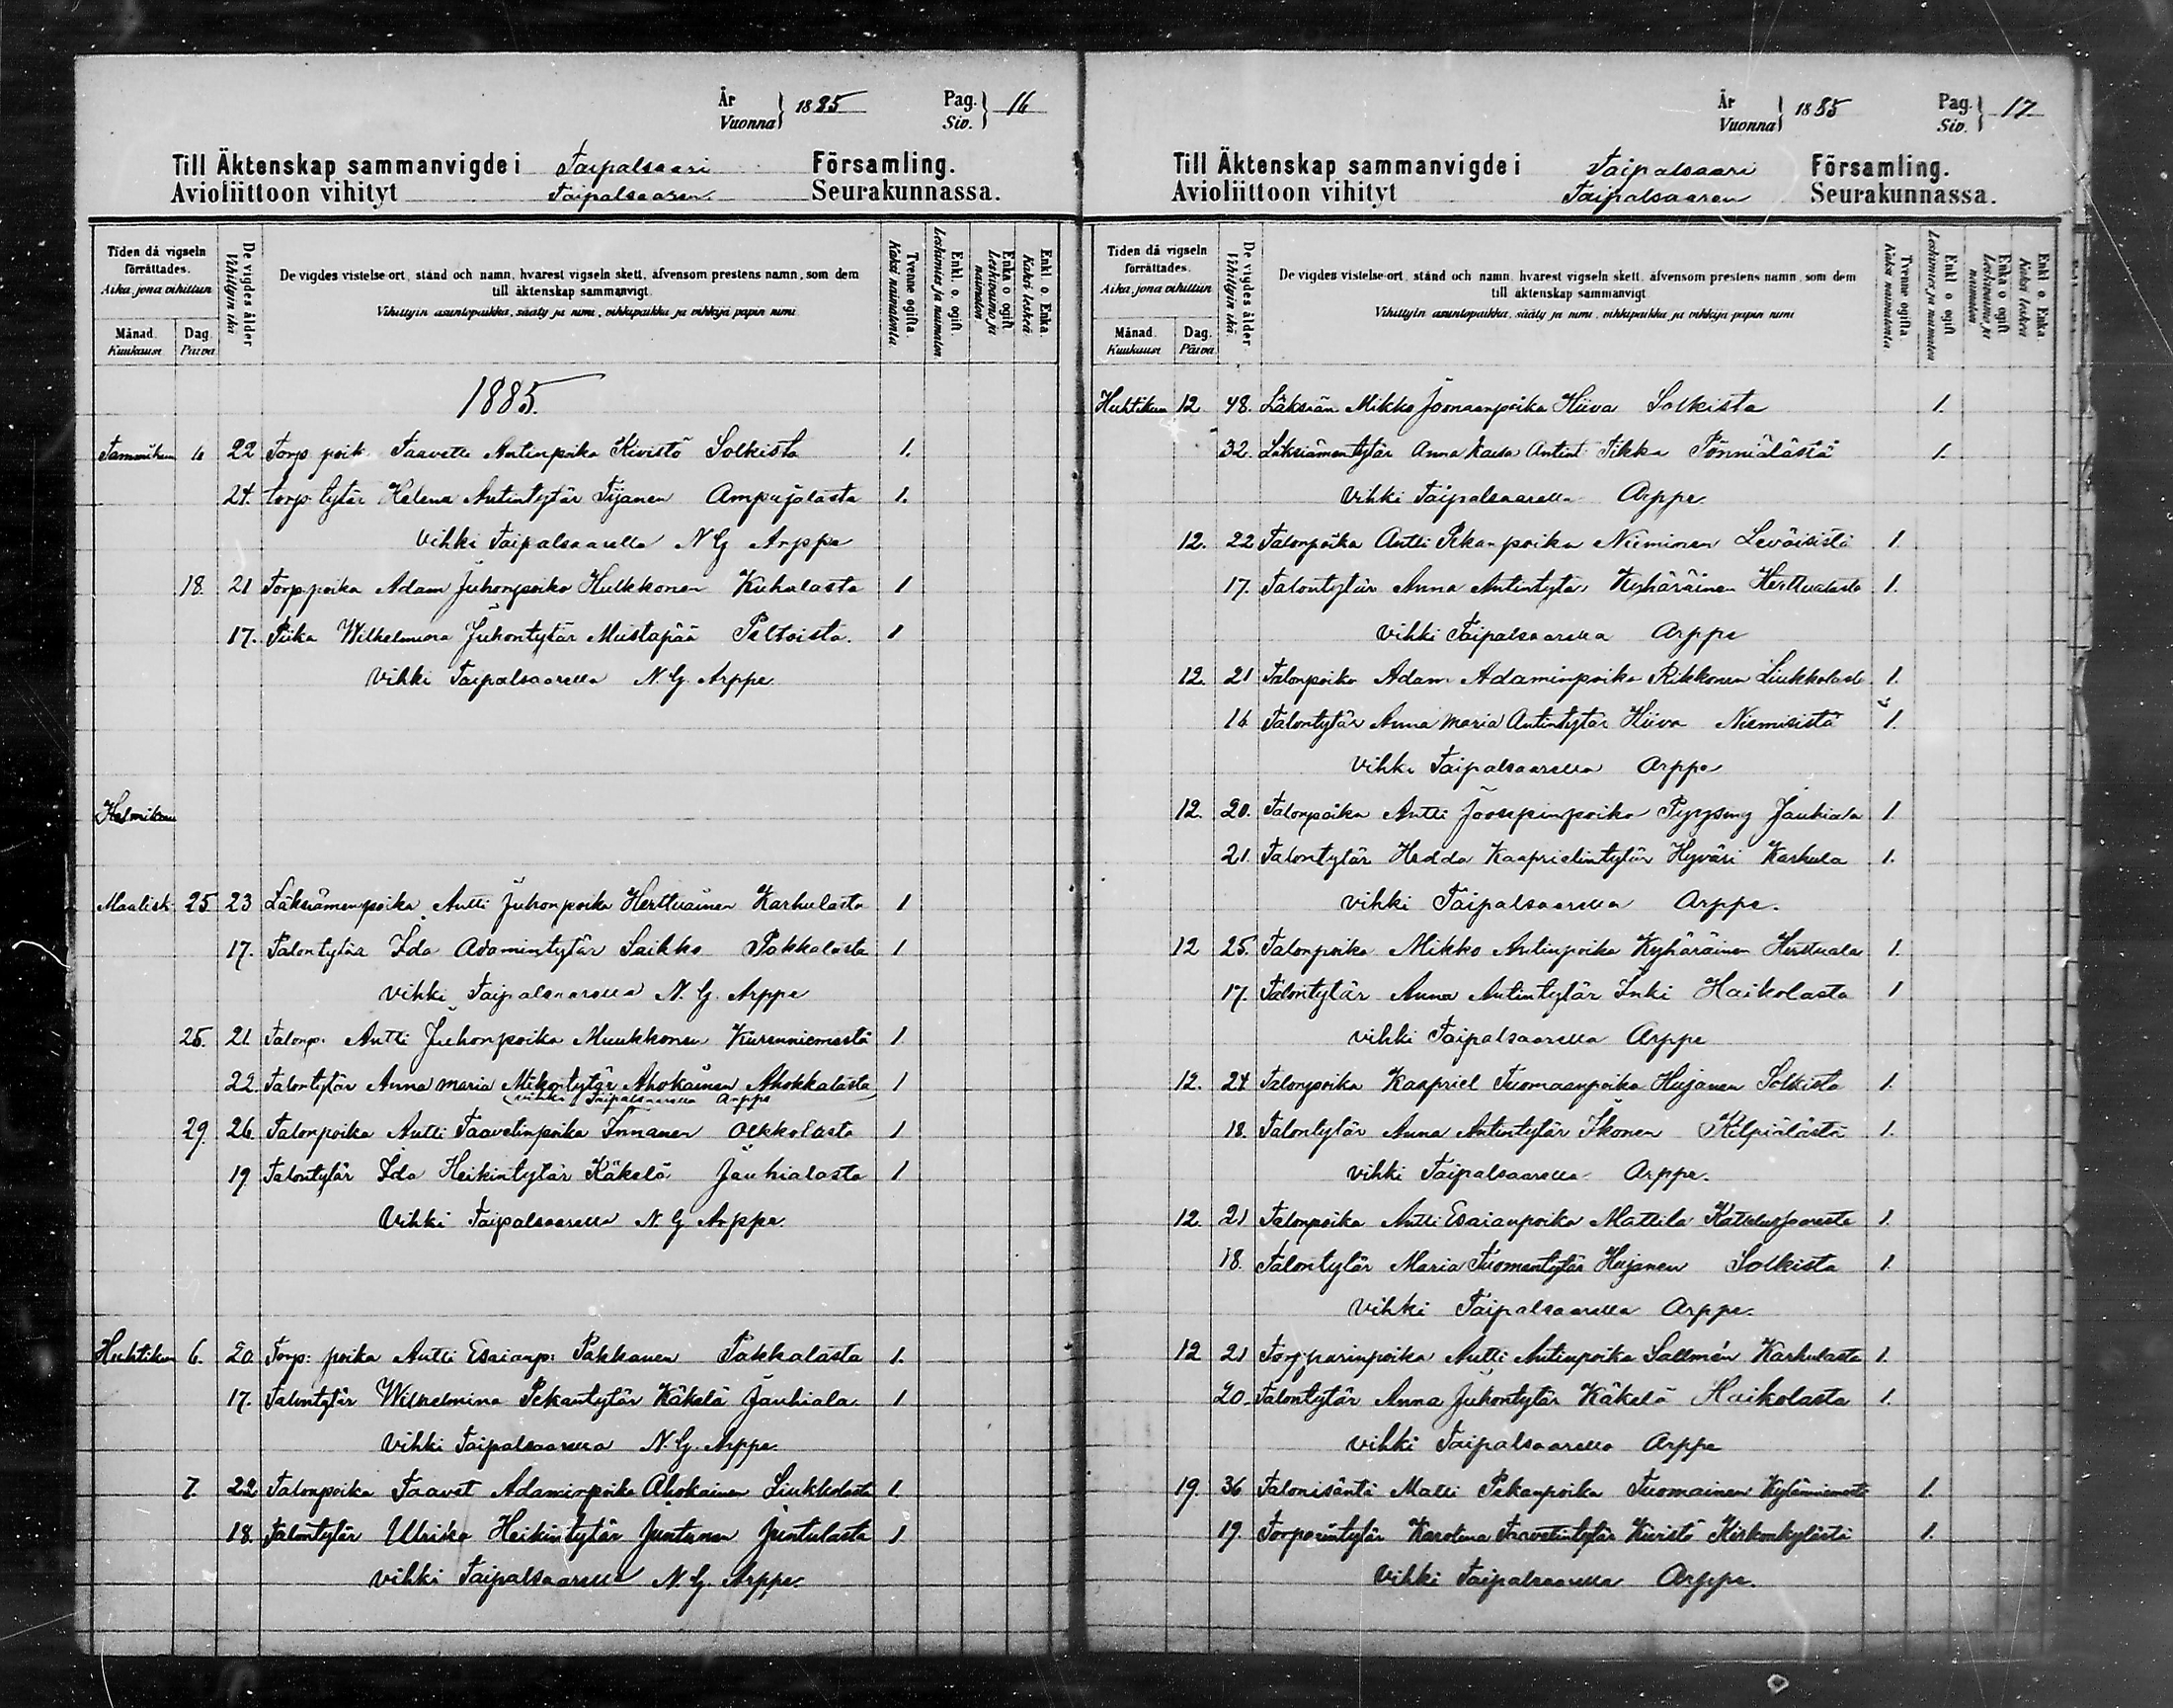 År
Vuonna } 1885 Pag.
Siv. } 16
Till Äktenskap sammanvigde i Taipalsaari Församling.
Avioliittoon vihityt Taipalsaaren Seurakunnassa.
Tiden då vigseln förrättades.
Aika, jona vihittiin
Månad.
Kuukausi
Dag.
Päivä
De vigdes ålder
Vihittyin ikä
De vigdes vistelse-ort, stånd och namn, hvarest vigseln skett, äfvensom prestens namn, som dem
till äktenskap sammanvigt
Vihittyin asuntopaikka, sääty ja nimi, vihkipaikka ja vihkijä papin nimi
Tvenne ogifta.
Kaksi naimatonta
Enkl. o. ogift.
Leskimies ja naimaton
Enka o ogift
Leskivaimo ja naimaton
Enkl o. Enka.
Kaksi leskeä
1885.
Tammikuu 6 22 Torp. poik. Taavetti Antinpoika Kivistö Solkista 1.
24. torp. tytär Helena Antintytär Tijanen Ampujalasta 1.
Vihki Taipalsaarella N G Arppe
18. 21 Torp. poika Adam Juhonpoika Hulkkonen Kuhalasta 1
17. Piika Wilhelmina Juhontytär Mustapää Peltoista. 1
Vihki Taipalsaarella N. G. Arppe.
Helmikuu
Maalisk. 25 23 Läksiämenpoika Antti Juhonpoika Herttuainen Karhulasta 1
17. Talontytär Ida Adamintytär Saikko Pakkalasta 1
Vihki Taipalsaarella N. G. Arppe
25. 21. Talonp. Antti Juhonpoika Muukkonen Kurenniemestä 1
22. Talontytär Anna Maria Mikontytär Ahokainen Ahokkalasta 1
(vihki Taipalsaarella Arppe)
29. 26. Talonpoika Antti Taavetinpoika Innanen Olkkolasta 1
19 Talontytär Ida Heikintytär Käkelä Jauhialasta 1
Vihki Taipalsaarella N. G. Arppe.
Huhtikuu 6. 20. Torp: poika Antti Esaianp: Pakkanen Pakkalasta 1.
17. Talontytär Wilhelmina Pekantytär Käkelä Jauhiala 1
Vihki Taipalsaarella N. G. Arppe.
7. 22 Talonpoika Taavet Adaminpoika Ahokainen Liukkolasta 1.
18. Talontytär Ulrika Heikintytär Juntunen Jintulasta 1.
Vihki Taipalsaarella N. G. Arppe.
År
Vuonna } 1885 Pag.
Siv. } 17
Till Äktenskap sammanvigde i Taipalsaari Församling.
Avioliittoon vihityt Taipalsaaren Seurakunnassa.
Tiden då vigseln förrättades.
Aika, jona vihittiin
Månad.
Kuukausi
Dag.
Päivä
De vigdes ålder.
Vihittyin ikä.
De vigdes vistelse-ort, stånd och namn, hvarest vigseln skett, äfvensom prestens namn, som dem
till äktenskap sammanvigt
Vihittyin asuntopaikka, sääty ja nimi, vihkipaikka ja vihkijä papin nimi
Tvenne ogifta.
Kaksi naimatonta
Enkl o ogift
Leskimies ja naimaton
Enka o ogift
Leskivaimo ja naimaton
Enkl o. Enka.
Kaksi leskeä
Huhtikuu 12. 48. Läksiän Mikko Joonaanpoika Hiiva Solkista 1.
32. Läksiämentytär Anna Kaisa Antint. Tikka Pönniälästä 1.
Vihki Taipalsaarella Arppe.
12. 22 Talonpoika Antti Pekanpoika Nieminen Leväisistä 1.
17. Talontytär Anna Antintytär Kyhäräinen Herttualasta 1.
Vihki Taipalsaarella Arppe
12. 21 Talonpoika Adam Adaminpoika Rikkonen Liukkolasta 1.
16 Talontytär Anna Maria Antintytär Hiiva Niemisistä 1.
Vihki Taipalsaarella Arppe
12. 20. Talonpoika Antti Joosepinpoika Jauhiala 1
21. Talontytär Hedda Kaaprielintytär Hyväri Karhula 1.
Vihki Taipalsaarella Arppe.
12 25. Talonpoika Mikko Antinpoika Kyhäräinen Herttuala 1.
17. Talontytär Anna Antintytär Inki Haikolasta 1
Vihki Taipalsaarella Arppe
12. 24 Talonpoika Kaapriel Tuomaanpoika Hujanen Solkista 1.
18. Talontytär Anna Antintytär Ikonen Kilpiälästä 1.
Vihki Taipalsaarella Arppe.
12. 21 Talonpoika Antti Esaianpoika Mattila 1.
18. Talontytär Maria Tuomantytär Hujanen Solkista 1.
Vihki Taipalsaarella Arppe.
12 21 Torpparinpoika Antti Antinpoika Sallmén Karhulasta 1.
20. Talontytär Anna Juhontytär Käkelä Haikolasta 1.
Vihki Taipalsaarella Arppe
19. 36 Talonisäntä Matti Pekanpoika Tuomainen Kyläniemestä 1.
19. Torparintytär Karolina Taavetintytär Kivistö Kirkonkylästä 1.
Vihki Taipalsaarella Arppe.